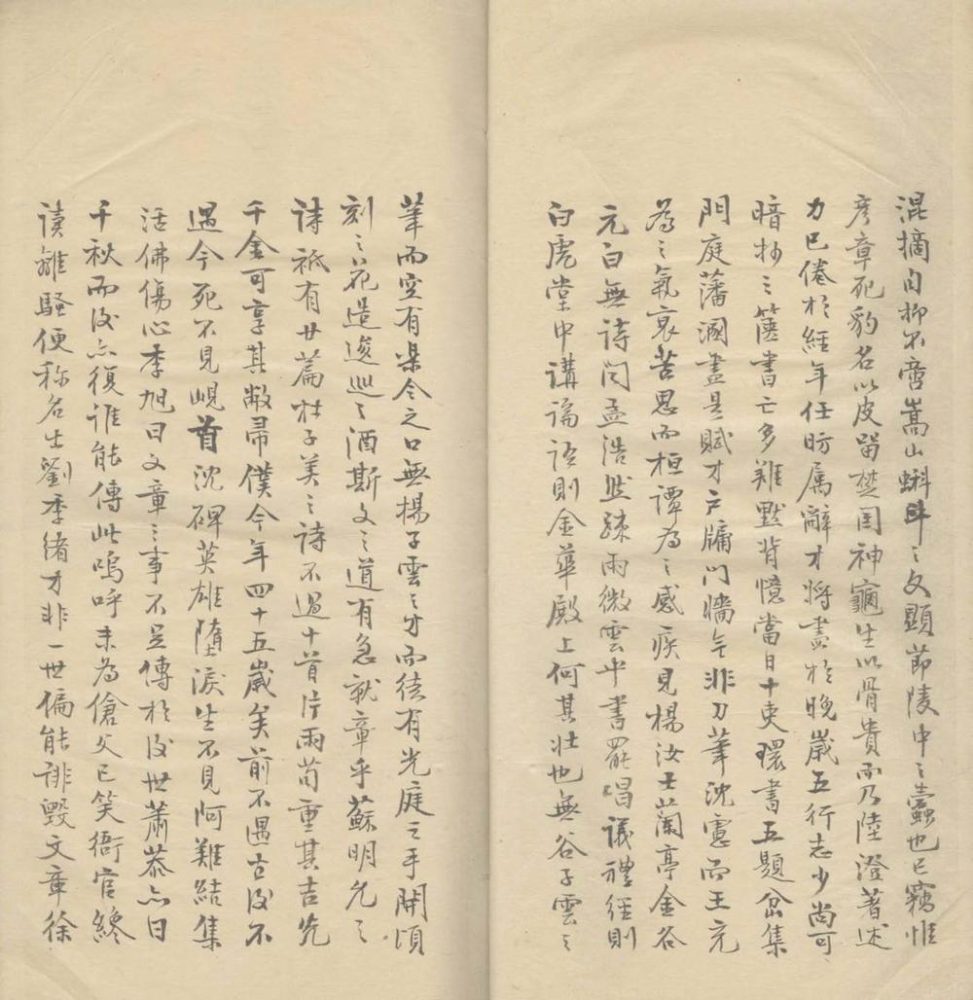 混摘自抑不啻嵩山蝌蚪之文顯節陵中之蠹也已竊惟
彥章死豹名以皮留楚國神龜生以骨貴而乃陸澄著述
力已倦於經年任昉属辭才將盡於晚歲五行志少尚可
暗抄三篋書亡多難默背憶當日十吏環書五題岔集
門庭藩溷盡是賦才戶牖門牆無非刀筆沈憲而王元
為之氣衰苦思而桓譚為之感疾見楊汝士蘭亭金谷
元白無詩聞孟浩然疎雨微雲中書罷唱議禮經則
白虎堂中講論語則金華殿上何其壯也無谷子雲之
筆而空有梁令之口無楊子雲之才而徒有光庭之手開頃
刻之花造逡巡之酒斯文之道有急就章乎蘇明允之
詩祇有廿篇杜子美之詩不過十首片雨苟重其吉光
千金可享其敝帚僕今年四十五歲矣前不遇古後不
遇今死不見峴首沈碑英雄墮淚生不見阿難結集
活佛傷心李旭曰文章之事不足傳於後世蕭恭亦曰
千秋而後亦復誰能傳此嗚呼未為傖父已笑衙官終
讀離騷便称名士劉季緒才非一世偏能誹毀文章徐